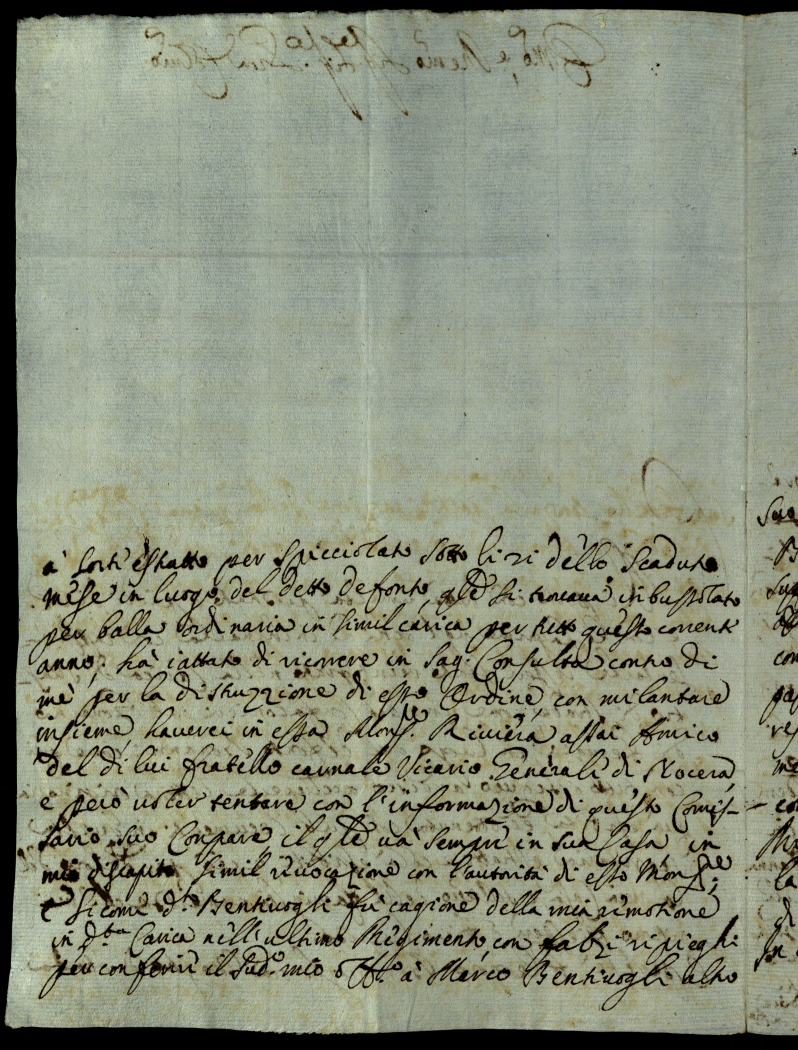 à sorte estratto per spicciolato sotto li 21 dello scaduto
mese in luogo del detto defonto, qle si trovava inbussolato
per balla ordinaria in simil carica per tutto questo corrente
anno; hà iattato di ricorrere in Sag. Consulta contro di
mè per la distruzzione di esso Ordine, con milantare
insieme haverci in essa Monsre. Riviera assai Amico
del di lui fratello carnale Vicario Generale di Nocera,
e però voler tentare con l'informazione di questo Comis-
sario suo Compare il qle và sempre in sua Casa in
mio discapito simil rivocazione con l'autorità di esso Monsre;
E sicome do. Bentivogli fù cagione della mia rimotione
in dta. Carica nell'ultimo Regimento con falzi ripieghi
per conferire il sudo. mio Offo. à Marco Bentivogli altro